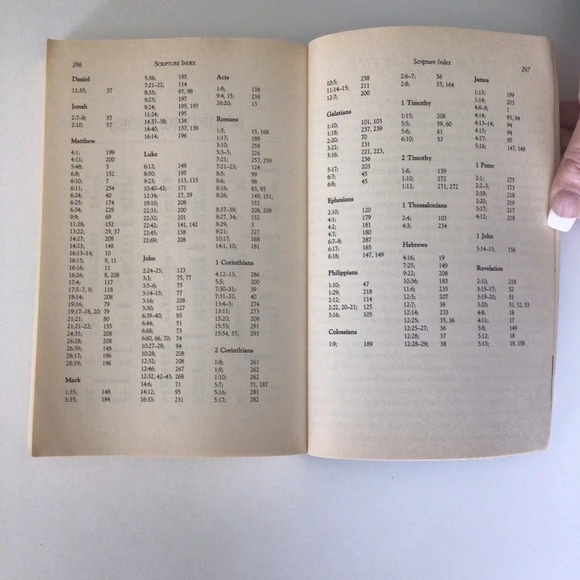 296 SCRIPTURE INDEX
Daniel
11:35; 37
Jonah
2:7–8; 57
2:10; 57
Matthew
4:1; 199
4:11; 200
5:48; 3
6:8; 152
6:10; 7
6:11; 254
6:24; 40
6:25; 174
6:34; 229
9:9; 69
11:28; 152
13:22; 29, 37
14:23; 148
16:13–14; 10
16:15; 9, 11
16:16; 11
16:26; 8, 208
17:4; 117
17:5–7, 9; 118
18:14; 208
19:16; 79
19:17–18, 20; 79
21:21; 80
21:21–22; 155
24:35; 208
26:28; 208
26:39; 145
28:18; 196
28:19; 196
Mark
1:35; 148
5:35; 184
5:36; 195
7:21–22; 114
8:33; 97, 98
9:23; 197
9:24; 195, 197
11:24; 195
14:37–38; 138
14:40; 137, 138
16:14; 196
Luke
6:12; 148
8:50; 195
9:23; 113, 115
10:40–42; 171
24:34; 29, 51
19:10; 208
22:31; 200
22:32; 201
22:42; 141, 142
22:45; 138
22:69; 208
John
2:24–25; 123
3:3; 75, 77
3:5–6; 75
3:14–15; 77
3:16; 208
5:30; 127
6:39–40; 85
6:44; 51
6:68; 73
6:60, 66, 70; 74
10:27–28; 84
10:28; 208
12:32; 208
12:46; 267
12:32, 42–43; 268
14:6; 71
14:12; 95
16:33; 231
Acts
1:8; 138
9:4, 15; 238
26:20; 13
Romans
1:5; 15, 168
1:17; 189
3:10; 258
5:3–5; 226
7:21; 257, 259
7:21–23; 124
8:5; 99
6:6; 98
8:16; 83, 85
3:31; 149, 165
8:28; 152
8:37–39; 208, 209
8:27, 34; 152
8:29; 3
9:21; 227
10:17; 168
14:1; 81
1 Corinthians
4:12–13; 286
5:5; 200
7:30–31; 39
7:31–32; 40
13:4–5; 274
13:11; 273
15:20; 208
15:55; 291
15:54, 57; 291
2 Corinthians
1:8; 261
1:9; 262
1:10; 262
5:7; 71, 187
5:16; 281
5:17; 282
Scripture Index 297
10:5; 258
11:14–15; 211
12:7; 200
Galatians
1:10; 101, 103
1:18; 237, 239
2:20; 70
5:22; 231
5:16; 221, 223,
236
5:17; 236
6:7; 45
6:8; 45
Ephesians
2:10; 120
4:1; 179
4:2; 181
4:7; 180
6:7–8; 287
6:17; 165
6:18; 147, 149
Philippians
1:10; 47
1:29; 218
2:12; 114
2:22, 20–21; 125
3:16; 105
Colossians
1:9; 189
2:6–7; 56
2:8; 55, 164
1 Timothy
1:15; 208
5:5; 59, 60
6:10; 53
2 Timothy
1:6; 139
1:12; 271, 272
1 Thessalonians
2:4; 103
4:3; 234
Hebrews
4:16; 19
7:25; 149
9:22; 208
10:36; 183
11:6; 235
12:5; 207
12:14; 233
12:25; 35, 36
12:25–27; 36
12:28; 38
12:28–29; 38
James
1:13; 199
1:14; 203
4:6–8; 1
4:7; 93, 94
4:13–14; 94
5:16; 95
5:17; 147, 148
1 Peter
2:1; 275
2:2–3; 173
2:19; 218
2:20; 219
3:15; 5
4:12; 218
1 John
5:14–15; 156
Revelation
2:10; 218
3:15–17; 52
3:19–20; 53
3:20; 51, 52, 53
4:8; 18
4:11; 217
5:8; 149
5:12; 17
5:13; 18, 159